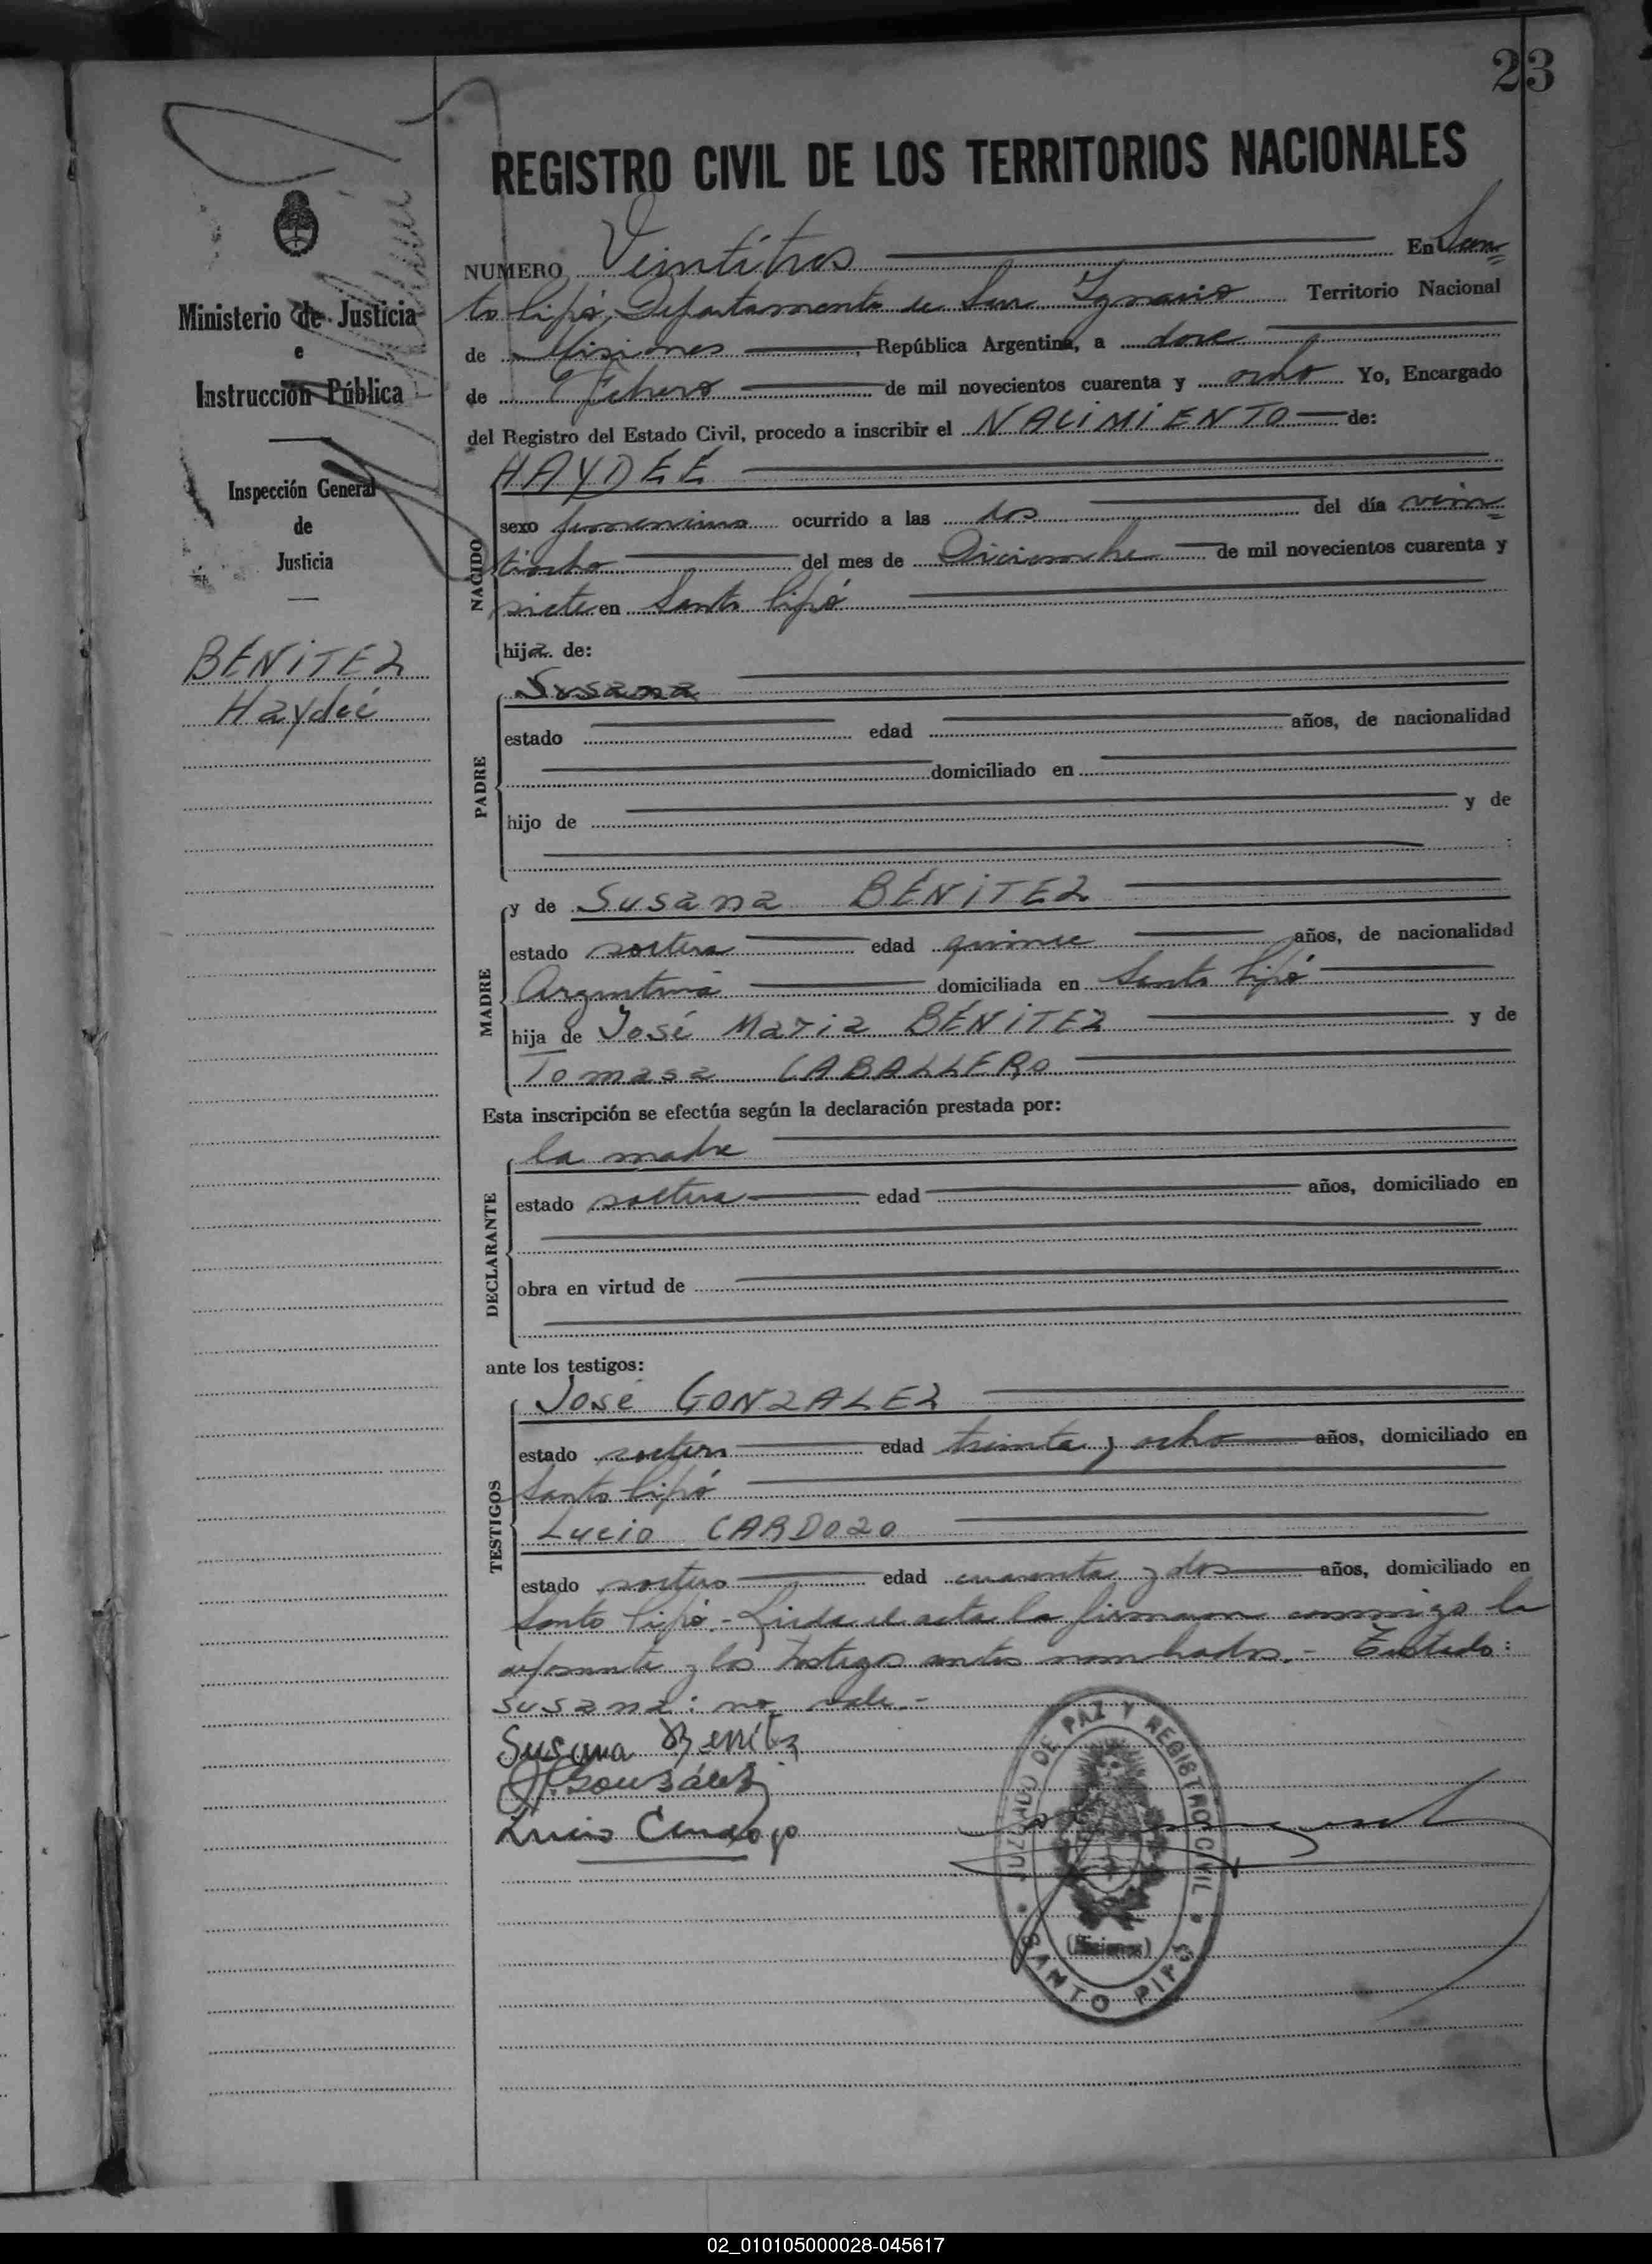 23
REGISTRO CIVIL DE LOS TERRITORIOS NACIONALES
Ministerio de Justicia
e
Instrucción Pública
Inspección General
de
Justicia
BÉNITEZ
Haydée
NUMERO Veintitres En San=
to Pipó, Departamento de San Ignacio Territorio Nacional
de Misiones, República Argentina, a doce
de Febrero de mil novecientos cuarenta y ocho Yo, Encargado
del Registro del Estado Civil, procedo a inscribir el NACIMIENTO de:
NACIDO
HAYDÉE
sexo femenino ocurrido a las dos del día vein=
tiocho del mes de Diciembre de mil novecientos cuarenta y
siete en Santo Pipó
hija de:
PADRE
Susana
estado edad años, de nacionalidad
domiciliado en
hijo de y de
MADRE
y de Susana BÉNITEZ
estado soltera edad quince años, de nacionalidad
Argentina domiciliada en Santo Pipó
hija de José Maria BÉNITEZ y de
Tomasa CABALLERO
Esta inscripción se efectúa según la declaración prestada por:
DECLARANTE
la madre
estado soltera edad años, domiciliado en
obra en virtud de
ante los testigos:
TESTIGOS
José GONZALEZ
estado soltero edad treinta y ocho años, domiciliado en
Santo Pipó
Lucio CARDOZO
estado soltero edad cuarenta y dos años, domiciliado en
Santo Pipó.- Leida el acta la firmaron conmigo la
exponente y los testigos antes nombrados.- Testado:
Susana: no vale.-
Susana Benitz
J. González
Lucio Cardozo
JUZGADO DE PAZ Y REGISTRO CIVIL
(Misiones)
SANTO PIPÓ
02_010105000028-045617